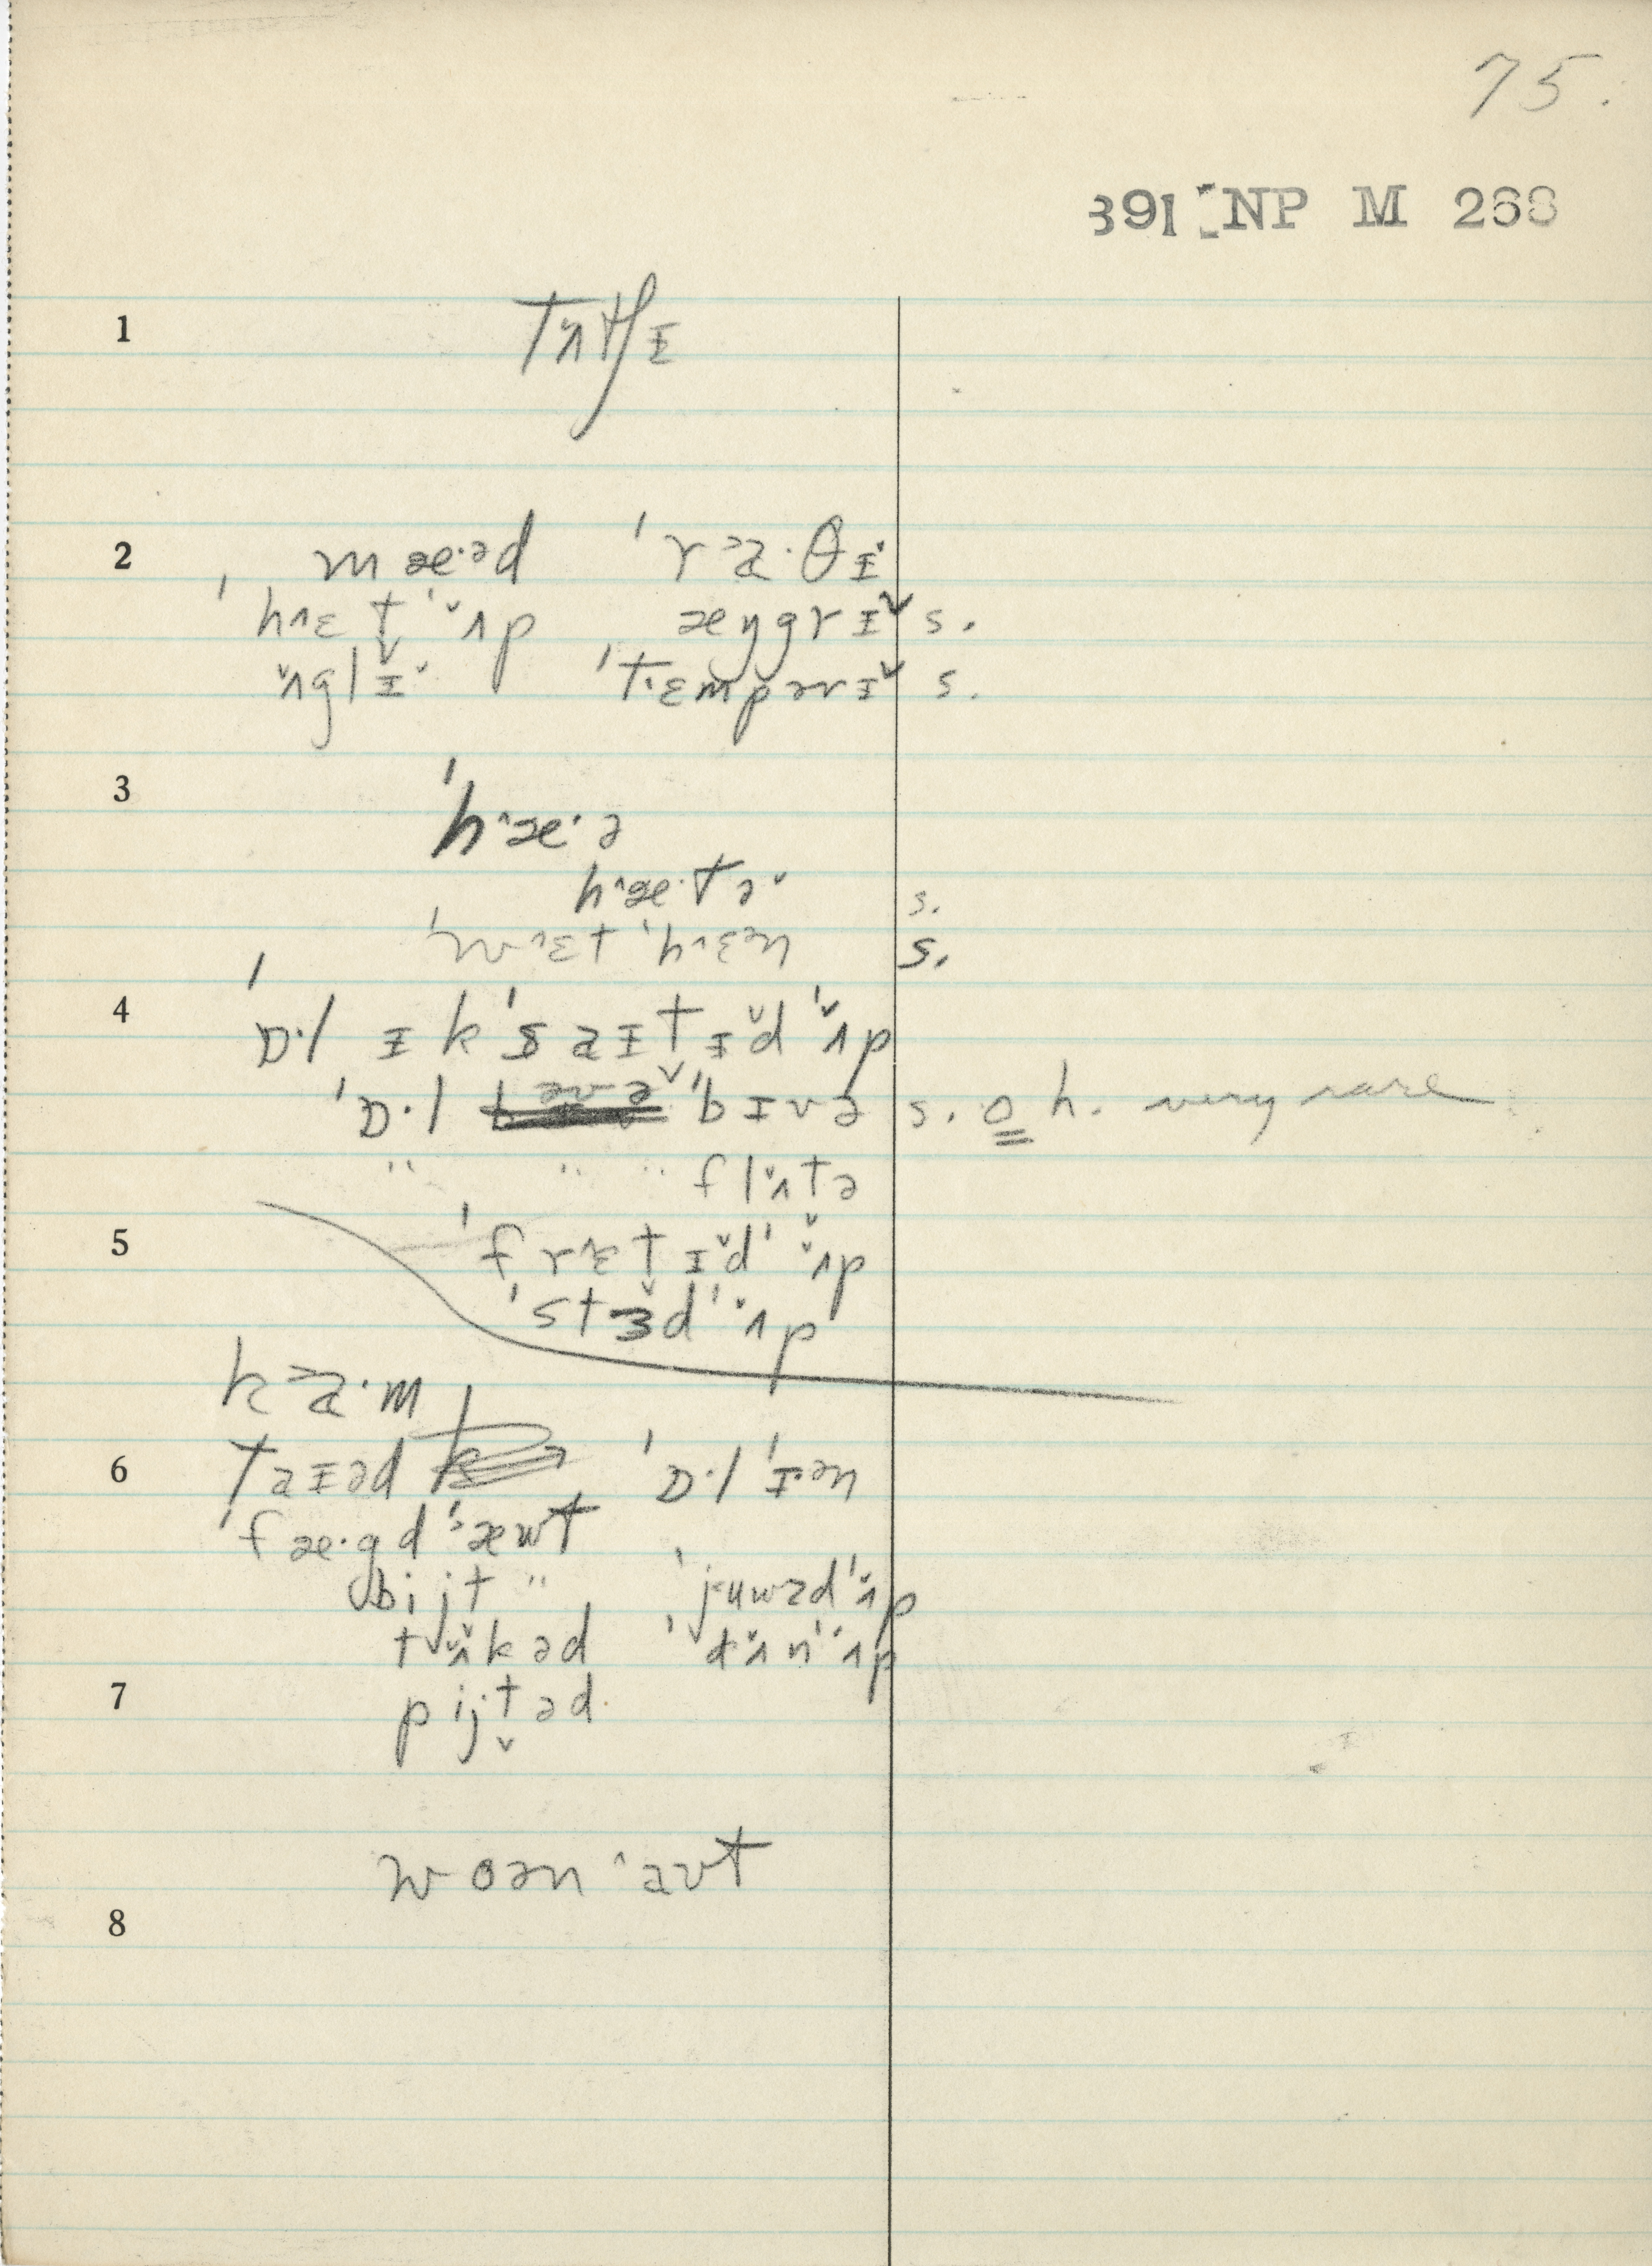 75.
391 NP M 268
1 tʌ̆tʃɪ
2 mæ·əd ˈra·θɪ̆
ˈhɛt ˈʌ̆p æŋgrɪ̆ s.
ʌ̆glɪ̆ ˈtɛmpərɪ̆ s.
3 ˈhæ·ə
hæ·tə̆ s.
ˈwɛt ˈhɛən s.
4 ˈɒ·l ɪkˈsaɪtɪ̆d ˈʌ̆p
ˈɒ·l ˈbɪvə s. o h. very rare
" " " flʌ̆tə
5 ˈfrɛt̬ɪ̆d ˈʌ̆p
ˈstɜd ˈʌ̆p
ka·m
6 taɪəd ˈɒ·l ˈɪ·ən
ˈfæ·gd ˈæwt
bijt " ˈjuwzd ˈʌ̆p
tʌ̆kəd ˈdʌ̆n ˈʌ̆p
7 pijt̬əd
woən ˈaʊt
8